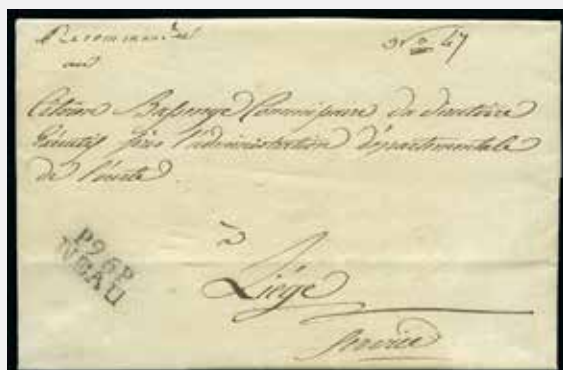 Recommandée
au
No 47
Citoien Bassenge Commissaire du directoire
Exécutif près l'administration départementale
de l'ourte
à
Liége
Service
P96P
NEAU